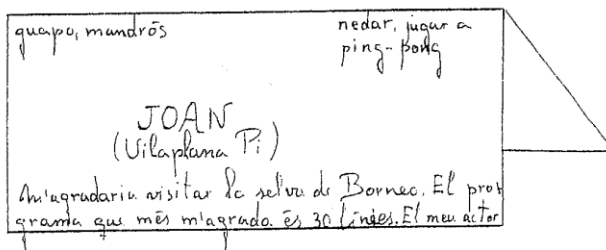 guapo, mandrós
nedar, jugar a
ping-pong
JOAN
(Vilaplana Pi)
M'agradaria visitar la selva de Borneo. El pro-
grama que més m'agrada és 30 línies. El meu actor